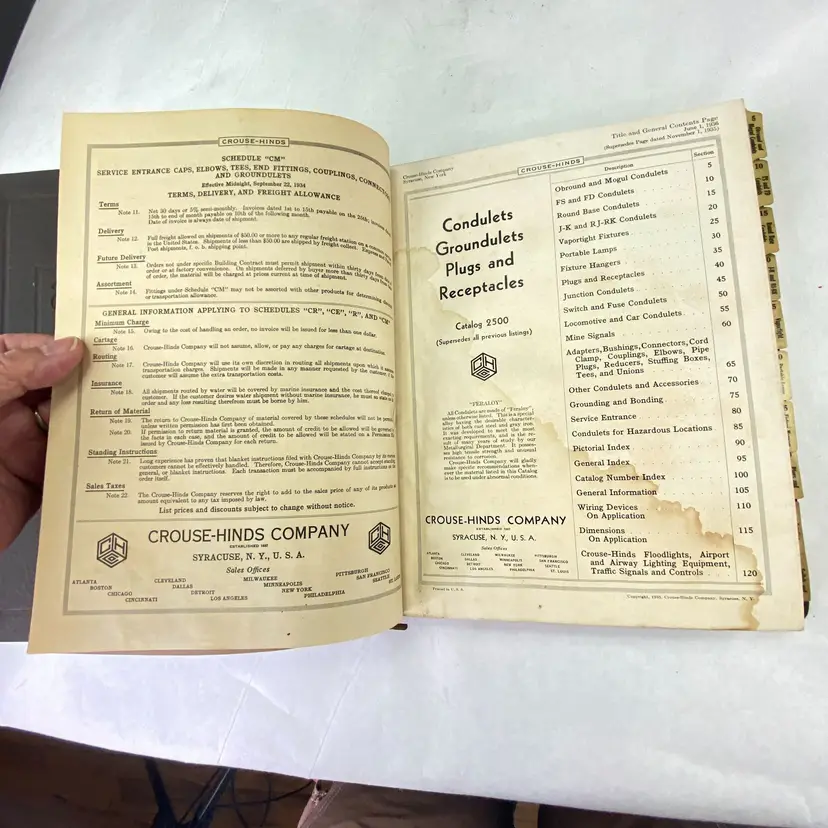 CROUSE-HINDS
SCHEDULE "CM"
SERVICE ENTRANCE CAPS, ELBOWS, TEES, END FITTINGS, COUPLINGS, CONNECTORS
AND GROUNDULETS
Effective Midnight, September 22, 1934
TERMS, DELIVERY, AND FREIGHT ALLOWANCE
Terms
Note 11. Net 30 days or 5% semi-monthly. Invoices dated 1st to 15th payable on the 25th; invoices
15th to end of month payable on 10th of the following month.
Date of invoice is always date of shipment.
Delivery
Note 12. Full freight allowed on shipments of $50.00 or more to any regular freight station
in the United States. Shipments of less than $50.00 are shipped by freight collect.
Post shipments, f. o. b. shipping point.
Future Delivery
Note 13. Orders not under specific Building Contract must permit shipment within thirty days from
or at factory convenience. On shipments deferred by buyer more than thirty days
of order, the material will be charged at prices current at time of shipment.
Assortment
Note 14. Fittings under Schedule "CM" may not be assorted with other products for determining
or transportation allowance.
GENERAL INFORMATION APPLYING TO SCHEDULES "CR", "CE", "R", AND "CM"
Minimum Charge
Note 15. Owing to the cost of handling an order, no invoice will be issued for less than one dollar.
Cartage
Note 16. Crouse-Hinds Company will not assume, allow, or pay any charges for cartage at destination.
Routing
Note 17. Crouse-Hinds Company will use its own discretion in routing all shipments upon which it
transportation charges. Shipments will be made in any manner requested by the customer
customer will assume the extra transportation costs.
Insurance
Note 18. All shipments routed by water will be covered by marine insurance and the cost thereof charged
customer. If the customer desires water shipment without marine insurance, he must so state
order and any loss resulting therefrom must be borne by him.
Return of Material
Note 19. The return to Crouse-Hinds Company of material covered by these schedules will not be
unless written permission has first been obtained.
Note 20. If permission to return material is granted, the amount of credit to be allowed will be governed
the facts in each case, and the amount of credit to be allowed will be stated on a Permission
issued by Crouse-Hinds Company for each return.
Standing Instructions
Note 21. Long experience has proven that blanket instructions filed with Crouse-Hinds Company by its
customers cannot be effectively handled. Therefore, Crouse-Hinds Company cannot accept
general, or blanket instructions. Each transaction must be accompanied by full instructions
order itself.
Sales Taxes
Note 22. The Crouse-Hinds Company reserves the right to add to the sales price of any of its products
amount equivalent to any tax imposed by law.
List prices and discounts subject to change without notice.
CROUSE-HINDS COMPANY
ESTABLISHED 1897
SYRACUSE, N. Y., U. S. A.
Sales Offices
ATLANTA CLEVELAND MILWAUKEE PITTSBURGH
BOSTON DALLAS MINNEAPOLIS SAN FRANCISCO
CHICAGO DETROIT NEW YORK SEATTLE
CINCINNATI LOS ANGELES PHILADELPHIA ST. LOUIS
Crouse-Hinds Company
Syracuse, New York
Title and General Contents Page
June 1, 1936
(Supersedes Page dated November 1, 1935)
CROUSE-HINDS
Condulets
Groundulets
Plugs and
Receptacles
Catalog 2500
(Supersedes all previous listings)
"FERALOY"
All Condulets are made of "Feraloy"
unless otherwise listed. This is a special
alloy having the desirable character-
istics of both cast steel and gray iron.
It was developed to meet the most
exacting requirements, and is the re-
sult of many years of study by our
Metallurgical Department. It posses-
ses high tensile strength and unusual
resistance to corrosion.
Crouse-Hinds Company will gladly
make specific recommendations when-
ever the material listed in this Catalog
is to be used under abnormal conditions.
CROUSE-HINDS COMPANY
ESTABLISHED 1897
SYRACUSE, N. Y., U. S. A.
Sales Offices
ATLANTA CLEVELAND MILWAUKEE PITTSBURGH
BOSTON DALLAS MINNEAPOLIS SAN FRANCISCO
CHICAGO DETROIT NEW YORK SEATTLE
CINCINNATI LOS ANGELES PHILADELPHIA ST. LOUIS
Description Section
Obround and Mogul Condulets 5
FS and FD Condulets 10
Round Base Condulets 15
J-K and RJ-RK Condulets 20
Vaportight Fixtures 25
Portable Lamps 30
Fixture Hangers 35
Plugs and Receptacles 40
Junction Condulets 45
Switch and Fuse Condulets 50
Locomotive and Car Condulets 55
Mine Signals 60
Adapters, Bushings, Connectors, Cord
Clamp, Couplings, Elbows, Pipe
Plugs, Reducers, Stuffing Boxes,
Tees, and Unions 65
Other Condulets and Accessories 70
Grounding and Bonding 75
Service Entrance 80
Condulets for Hazardous Locations 85
Pictorial Index 90
General Index 95
Catalog Number Index 100
General Information 105
Wiring Devices 110
On Application
Dimensions 115
On Application
Crouse-Hinds Floodlights, Airport
and Airway Lighting Equipment,
Traffic Signals and Controls 120
Printed in U. S. A.
Copyright, 1936, Crouse-Hinds Company, Syracuse, N. Y.